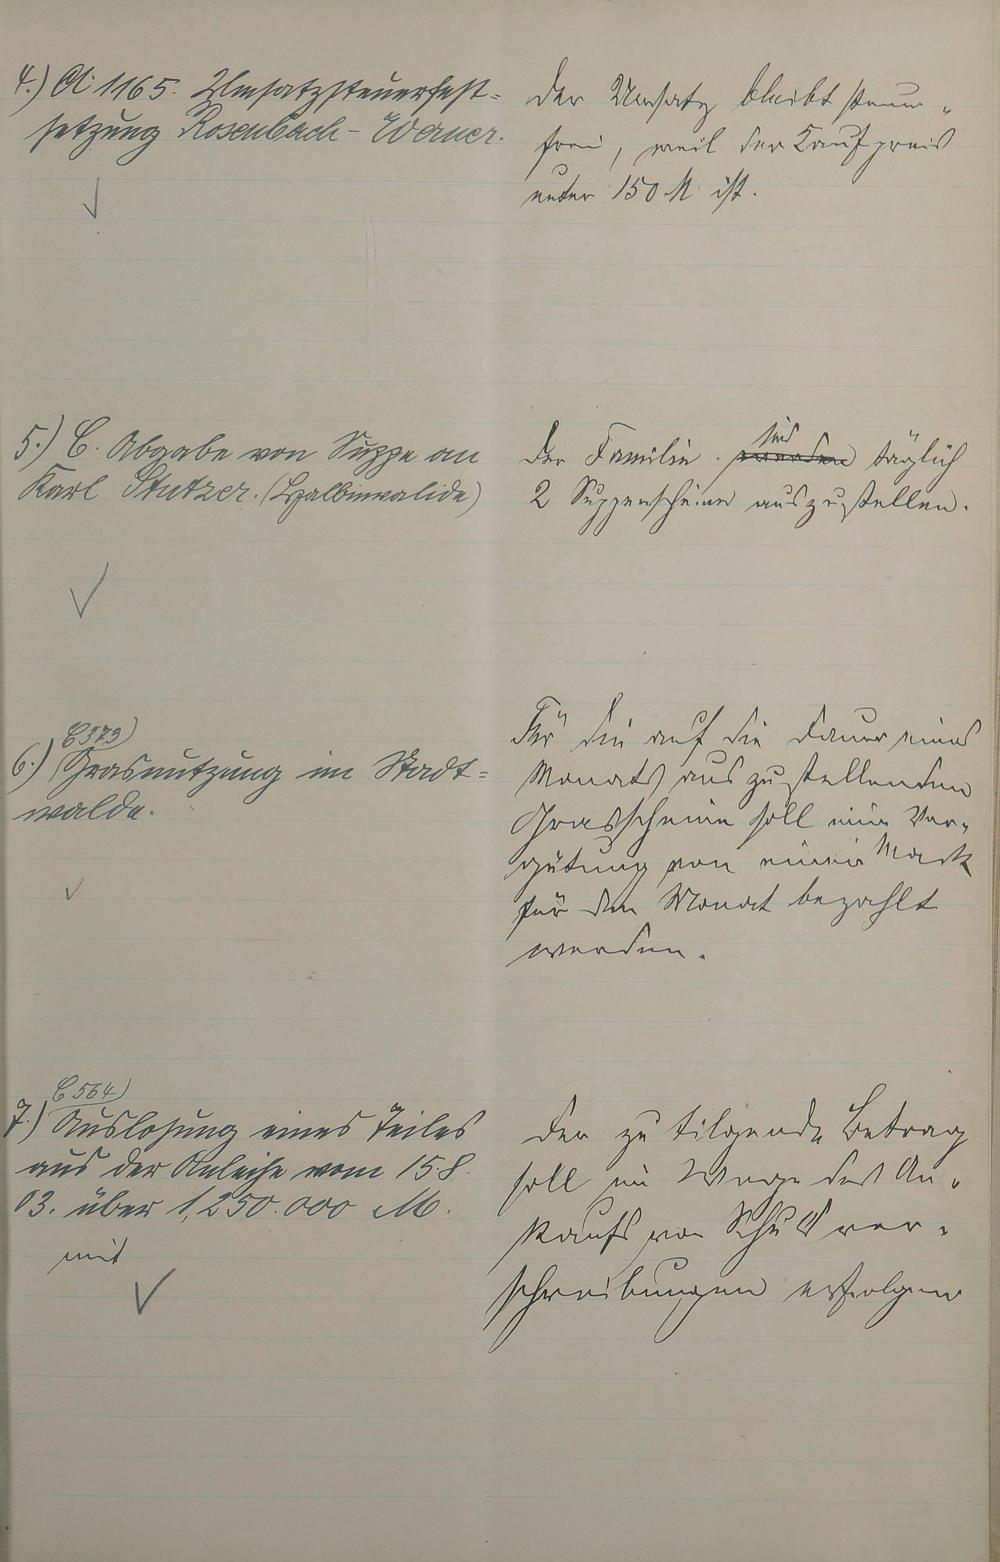 4.) A 1165. Umsatzsteuerfest-
setzung Rosenbach - Werner.
Der Umsatz bleibt steuer-
frei, weil der Kaufpreis
unter 150 M ist.
5.) C. Abgabe von Suppe an
Karl Stutzer. (Halbinvalide)
sind
Der Familie werden täglich
2 Suppenscheine auszustellen.
C 373)
6.) Grasnutzung im Stadt-
walde.
Für die auf die Dauer eines
Monats auszustellenden
Grasscheine soll eine Ver-
gütung von einer Mark
für den Monat bezahlt
werden.
C 564)
7.) Auslosung eines Teiles
aus der Anleihe vom 15.8.
03. über 1,250.000 M.
mit
Der zu tilgende Betrag
soll im Wege des An-
kaufs von Schuldver-
schreibungen erfolgen